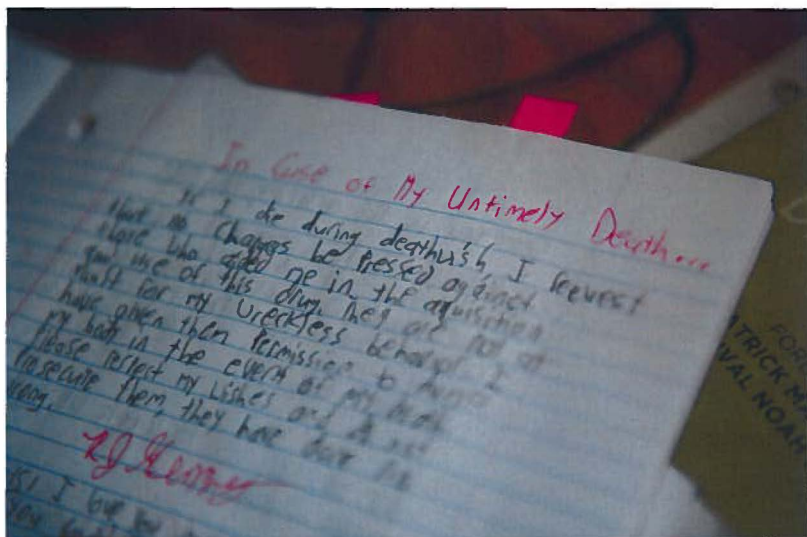 In Case of My Untimely Death...
If I die during deathwish, I request
that no charges be pressed against
those who aided me in the aquisition
and use of this drug. They are not at
fault for my wreckless behavior. I
have given them permission to
my body in the event of my death
Please respect my wishes and do not
prosecute them, they have done no
wrong.
I give
FOR
ATRICK M
VAL NOAH